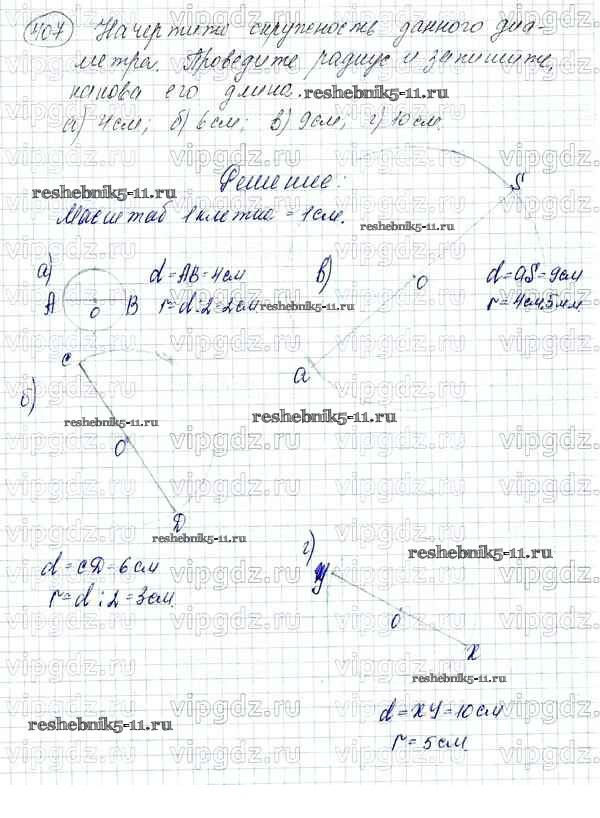 407 Начертите окружность данного диа-
метра. Проведите радиус и запишите,
какова его длина. reshebnik5-11.ru
а) 4см; б) 6см; в) 9см; г) 10см.
vipgdz.ru vipgdz.ru vipgdz.ru vipgdz.ru
Решение:
S
reshebnik5-11.ru
Масштаб 1 клетка = 1см. reshebnik5-11.ru
а) d=AB=4см в) O d=aS=9см
A O B r=d:2=2см reshebnik5-11.ru r=4см5мм.
C
a
б)
reshebnik5-11.ru reshebnik5-11.ru
O
D
reshebnik5-11.ru
г) reshebnik5-11.ru
d=CD=6см
У
r=d:2=3см.
O
X
reshebnik5-11.ru
reshebnik5-11.ru
d=XУ=10см
r=5см.